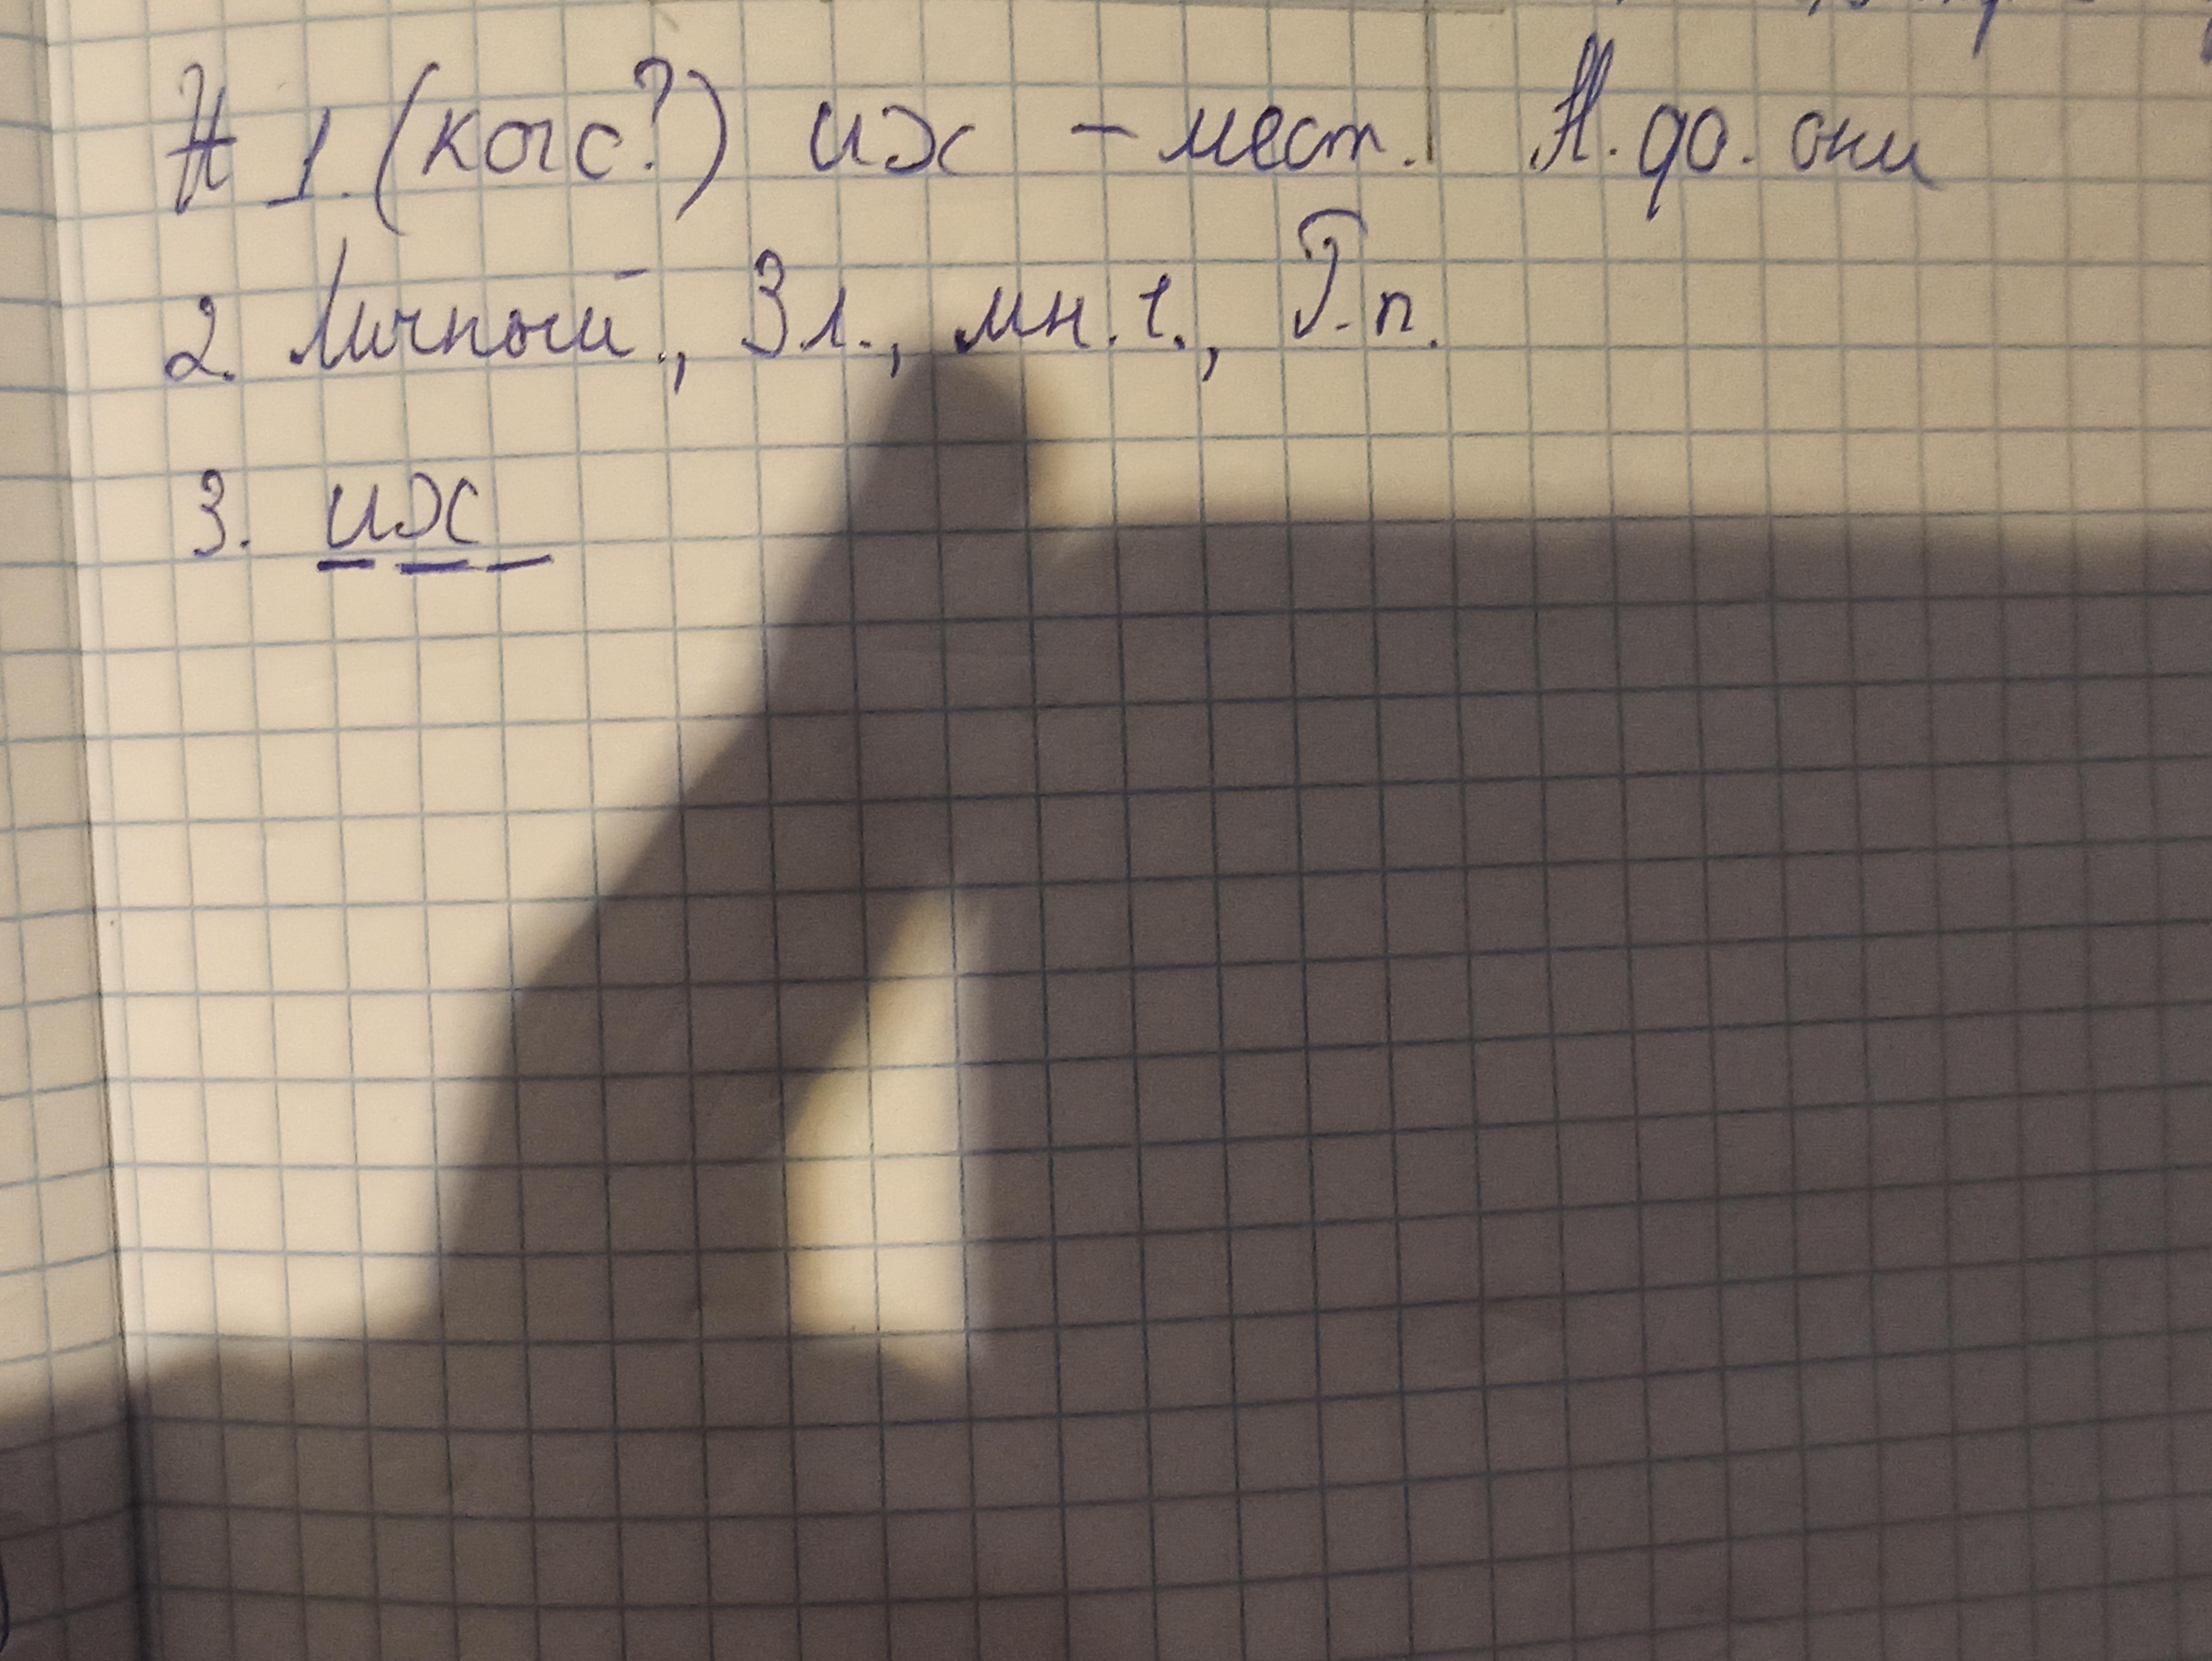 1. (кого?) их - мест. Н.ф. они
2. Личный., 3л., мн.ч., Р.п.
3. их